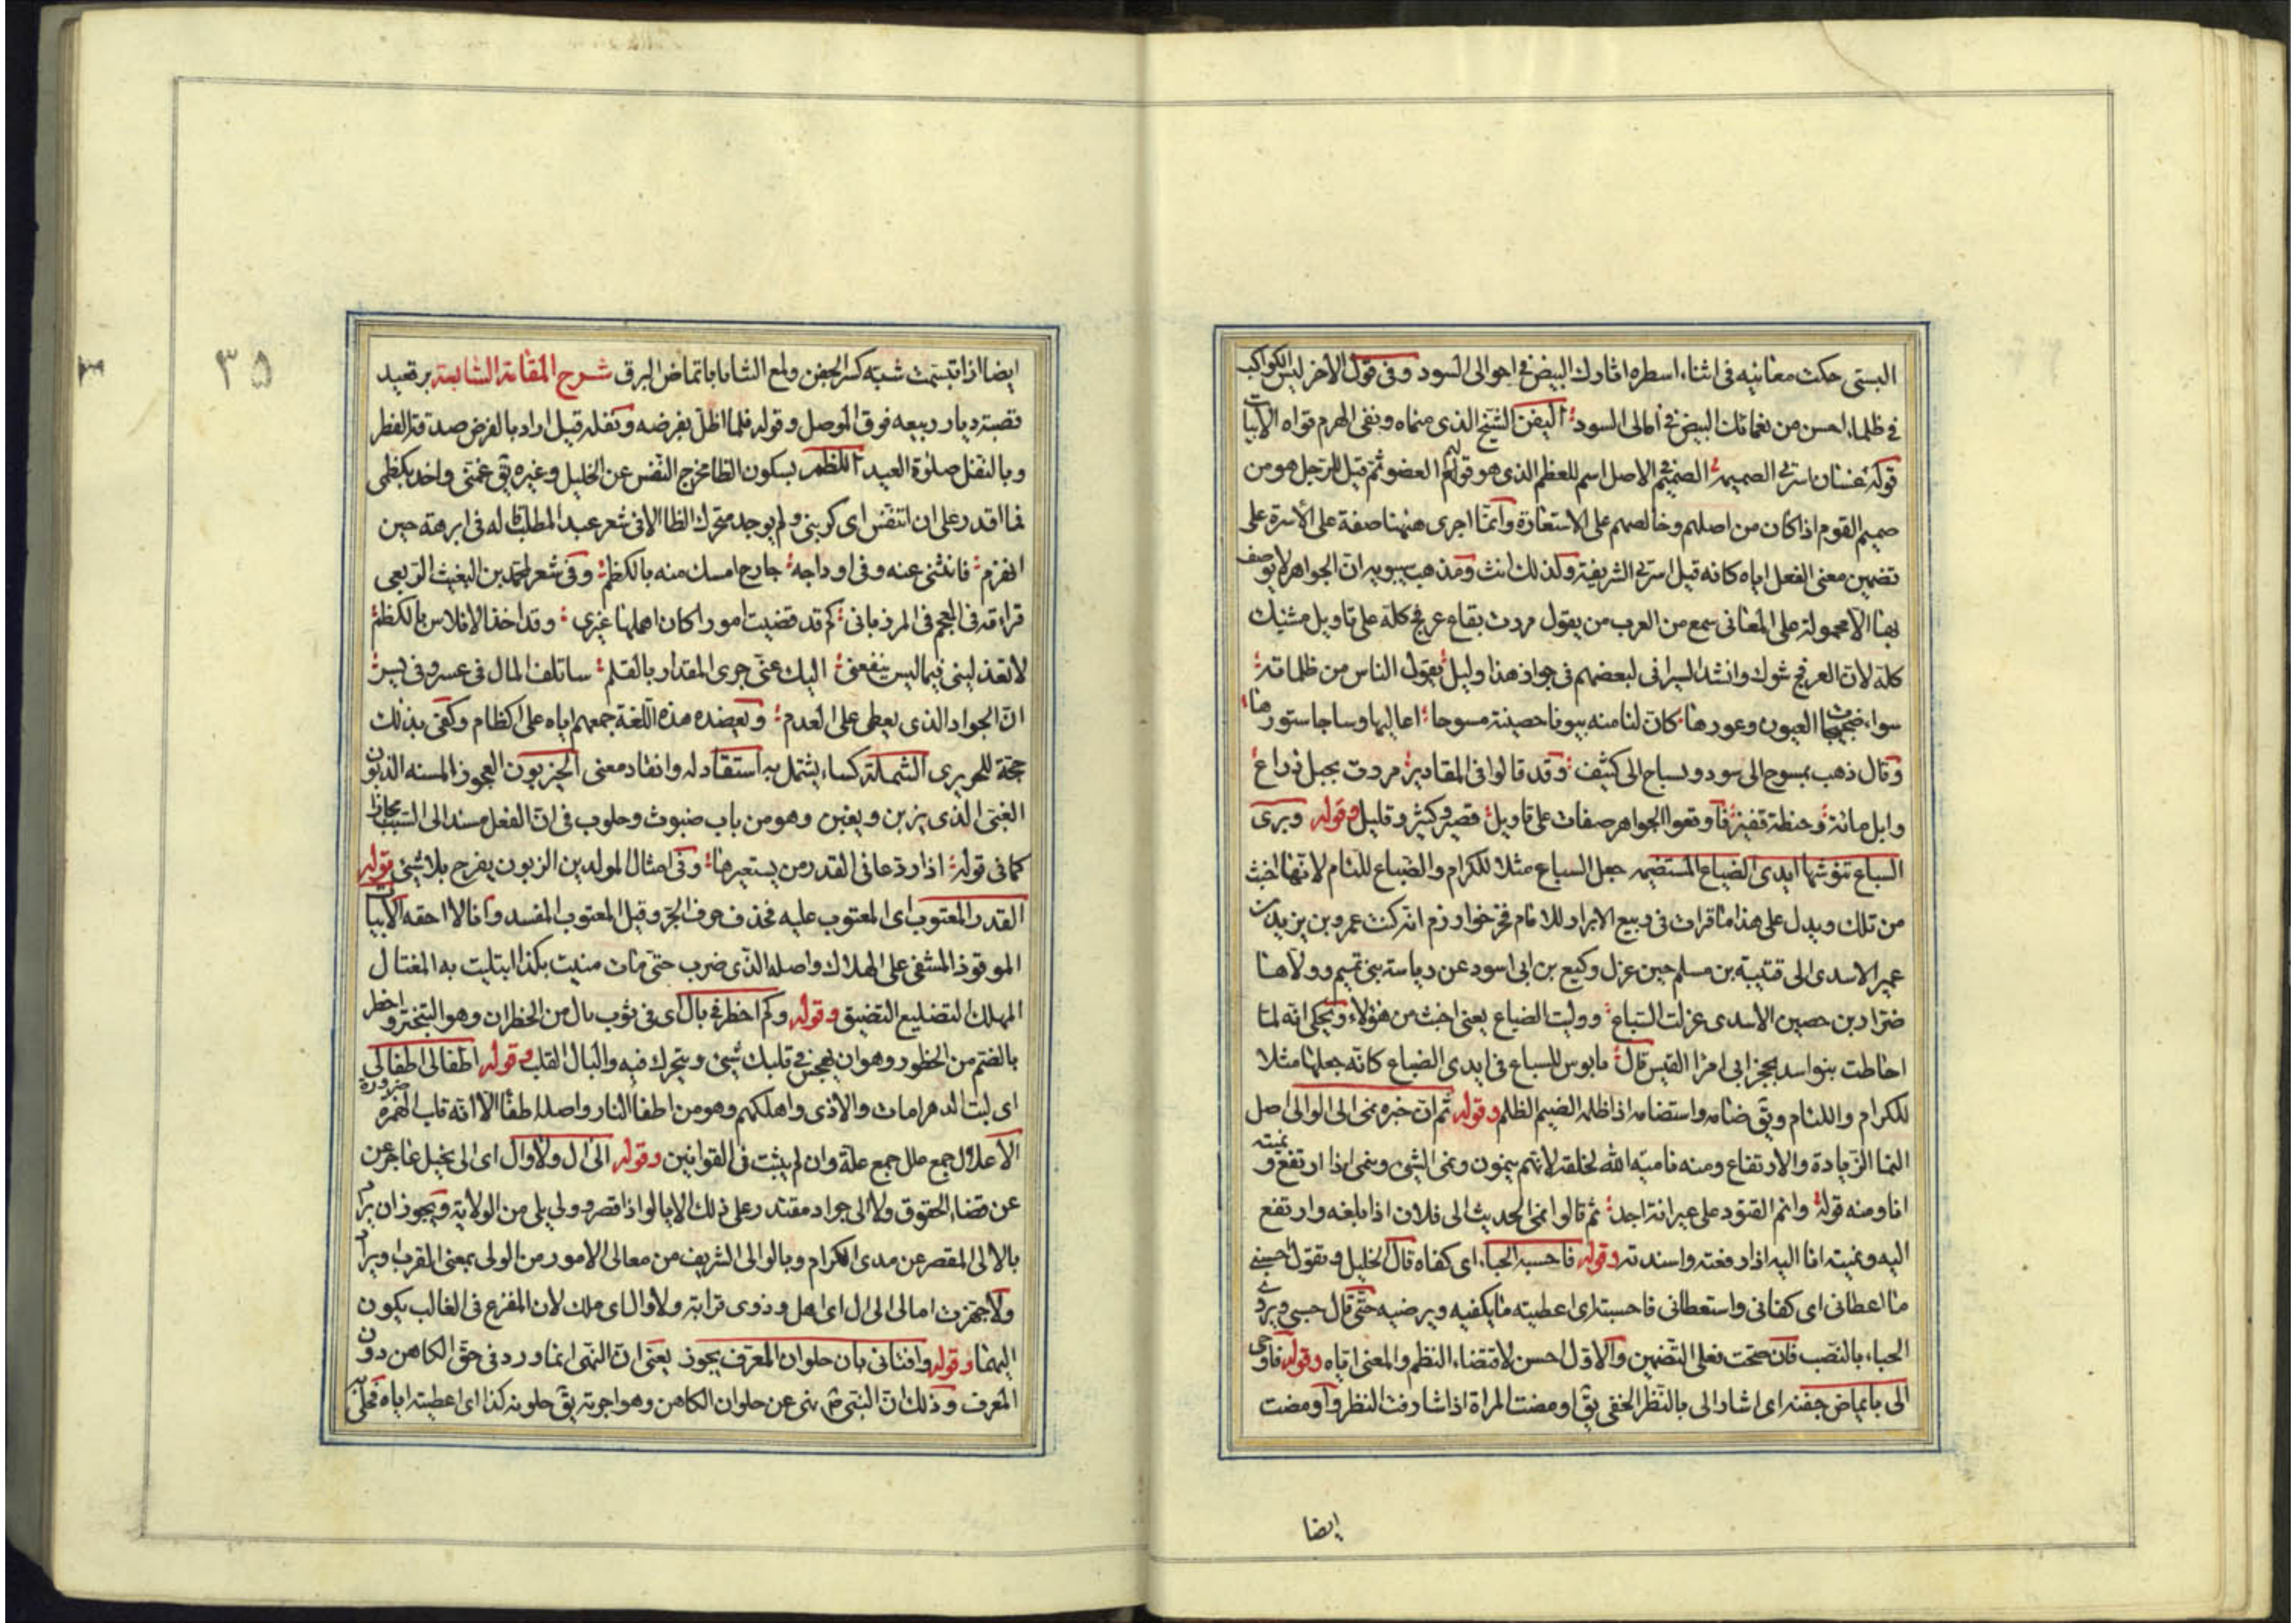 البستى حكت معانيه فى اثناء اسطره اثارك البيض فى احوالى السود وفى قول الاخر ليس الكواكب
فى ظلماء احسن من نعمائك البيض فى امالى السود اليفن الشيخ الذى مناه ونفى الهرم قواه الابيات
قوله غسان اسرتى الصميمه الصميم فى الاصل اسم للعظم الذى هو قوام العضو ثم قيل للرجل هو من
صميم القوم اذا كان من اصلهم وخالصهم على الاستعارة وانما اجرى ههنا صفة على الاسرة على
تضمين معنى الفعل اياه كانه قيل اسرتى الشريفة وكذلك انث ومذهب سيبويه ان الجواهر لا يوصف
بها الا محمولة على المعانى سمع من العرب من يقول مررت بقاع عرفج كله على تاويل مشيك
كله لان العرفج شوك وانشد السيرافى لبعضهم فى جواز هذا وليل يقول الناس من ظلماته
سواء صحيحات العيون وعورها كان لنا منه بيوتا حصينة مسوحا اعاليها وساجا ستورها
وقال ذهب بمسوح الى سود وبساج الى كثيف وقد قالوا فى المقادير مررت بحبل ذراع
وابل مائة وحنطة قفيز فاوقعوا الجواهر صفات على تاويل قصير وكثير وقليل وقوله ويرى
السباع تنوشها ايدى الضباع المستضيمه جعل السباع مثلا للكرام والضباع للئام لانها اخبث
من تلك ويدل على هذا ما قرات فى ربيع الابرار للامام فخر خوارزم انه كتب عمرو بن يزيد بن
عمير الاسدى الى قتيبة بن مسلم حين عزل وكيع بن ابى اسود عن رياسة بنى تميم وولاها
ضرار بن حصين الاسدى عزلت السباع ووليت الضباع يعنى اخبث من هؤلاء ويحكى انه لما
احاطت بنو اسد بحجر ابى امرا القيس قال يا بوس للسباع فى ايدى الضباع كانه جعلها مثلا
للكرام واللئام ويق ضامه واستضامه اذا ظلمه الضيم الظلم وقوله ثم ان خبره نمى الى الوالى اصل
النما الزيادة والارتفاع ومنه نامية الله لخلقه لانهم ينمون ونمى الشئ وينمى اذا ارتفع ونميته
انا ومنه قوله وانم القتود على عيرانة اجد ثم قالوا نمى الحديث الى فلان اذا بلغه وارتفع
اليه ونميته انا اليه اذا رفعته واسندته وقوله فاحسبه الحباء اى كفاه قال الخليل وتقول احسبنى
ما اعطانى اى كفانى واستعطانى فاحسبته اى اعطيته ما يكفيه ويرضيه حتى قال حسبى ويروى
الحباء بالنصب فان صحت فعلى التضمين والاول احسن لاقتضاء النظم والمعنى اياه وقوله فاوحى
الى بايماض جفنه اى اشار الى بالنظر الخفى يق اومضت المراة اذا سارقت النظر واومضت
ايضا
٣٥
ايضا اذا تبسمت شبه كسر الجفن ولمع الثنايا بايماض البرق شرح المقامة السابعة برقعيد
قصبة ديار ربيعه فوق الموصل وقوله فلما اظل بفرضه ونفله قيل اراد بالفرض صدقة الفطر
وبالنفل صلوة العيد الكظم بسكون الظا مخرج النفس عن الخليل وغيره يق غمنى واخذ بكظمى
فما اقدر على ان اتنفس اى كربنى ولم يوجد متحرك الظا الا فى شعر عبد المطلب قاله فى ابرهة حين
انهزم فانثنى عنه وفى اوداجه جارح امسك منه بالكظم وفى شعر لمحمد بن البغيث الربعى
قراءته فى المعجم فى المرزبانى كم قد قضيت امورا كان اهملها غيرى وقد اخذ الافلاس بالكظم
لا تعذلينى فيما ليس ينفعنى اليك عنى جرى المقدار بالقلم ساتلف المال فى عسر وفى يسر
ان الجواد الذى يعطى على العدم ويعضده هذه اللغة جمعهم اياه على اكظام وكفى بذلك
حجة للحريرى الشملة كساء يشتمل به استقاد له وانقاد معنى الحيزبون العجوز المسنه الزبون
الغبى الذى يزبن ويغبن وهو من باب ضبوث وحلوب فى ان الفعل مسند الى السبب مجازا
كما فى قوله اذا رد عافى القدر من يستعيرها وفى امثال المولدين الزبون يفرح بلا شئ قوله
القدر المعتوب اى المعتوب عليه فحذف حرف الجر وقيل المعتوب المفسد وانا لا احقه الابيات
الموقوذ المشفى على الهلاك واصله الذى ضرب حتى مات منيت بكذا ابتليت به المغتال
المهلك التضليع التضييق وقوله وكم اخطر فى بال اى فى ثوب بال من الخطران وهو التبختر واخطر
بالضم من الخطور وهو ان يهجس فى قلبك شئ ويتحرك فيه والبال القلب وقوله اطفالى اطفالى
اى ليت الدهر امات والاذى واهلكهم وهو من اطفا النار واصله اطفا الا انه قلب الهمزة ضرورة
الاعلال جمع علل جمع علة وان لم يثبت فى القوانين وقوله الى ال ولا وال اى الى بخيل عاجز عن
عن قضاء الحقوق ولا الى جواد مقتدر على ذلك الا يالوا اذا قصر وولى يلى من الولاية ويجوز ان يراد
بالالى المقصر عن مدى الكرام وبالوالى الشريف من معالى الامور من الولى بمعنى القرب او يراد
ولا جهزت امالى الى ال اى اهل وذوى قرابة ولا وال اى ملك لان المفزع فى الغالب يكون
اليهما وقوله وافتانى بان حلوان المعرف يجوز يعنى ان النهى انما ورد فى حق الكاهن دون
المعرف وذلك ان النبى ص نهى عن حلوان الكاهن وهو اجرته يق حلوته كذا اى اعطيته اياه